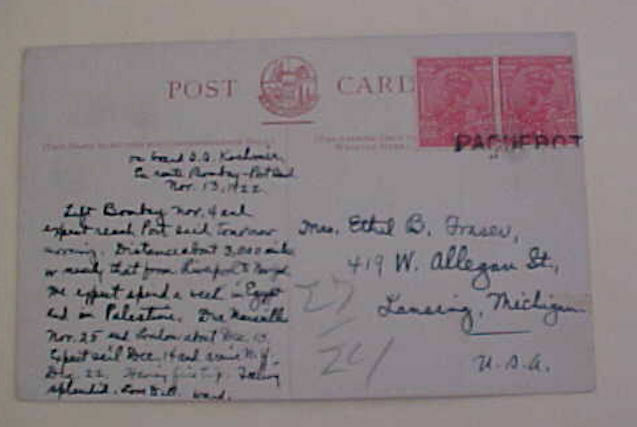 POST CARD
PAQUEBOT
on board S.S. Kashmir,
En route Bombay - Port Said
Nov. 13, 1922
Left Bombay Nov. 4 and
expect reach Port Said tomorrow
morning. Distance about 3,000 miles
or nearly that from Liverpool to
We expect spend a week in Egypt
and in Palestine. Due Marseille
Nov. 25 and London about Dec. 1.
Expect sail Dec. 14 and arrive N.Y.
Dec. 22. Having fine trip. Feeling
splendid. Love to all. Ward.
Mrs. Ethel B. Fraser,
419 W. Allegan St.,
Lansing, Michigan
U.S.A.